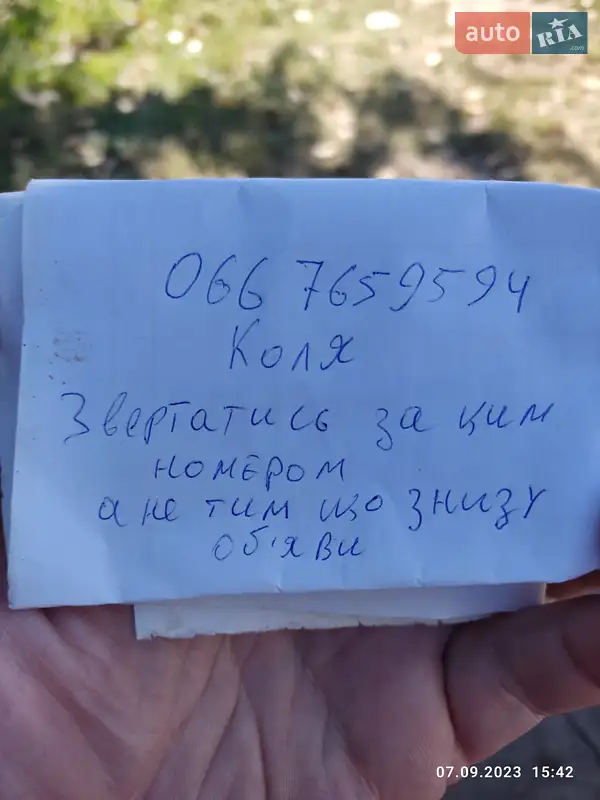 auto RIA .com
066 7659594
Коля
Звертатись за цим
номером
а не тим що знизу
об'яви
07.09.2023 15:42